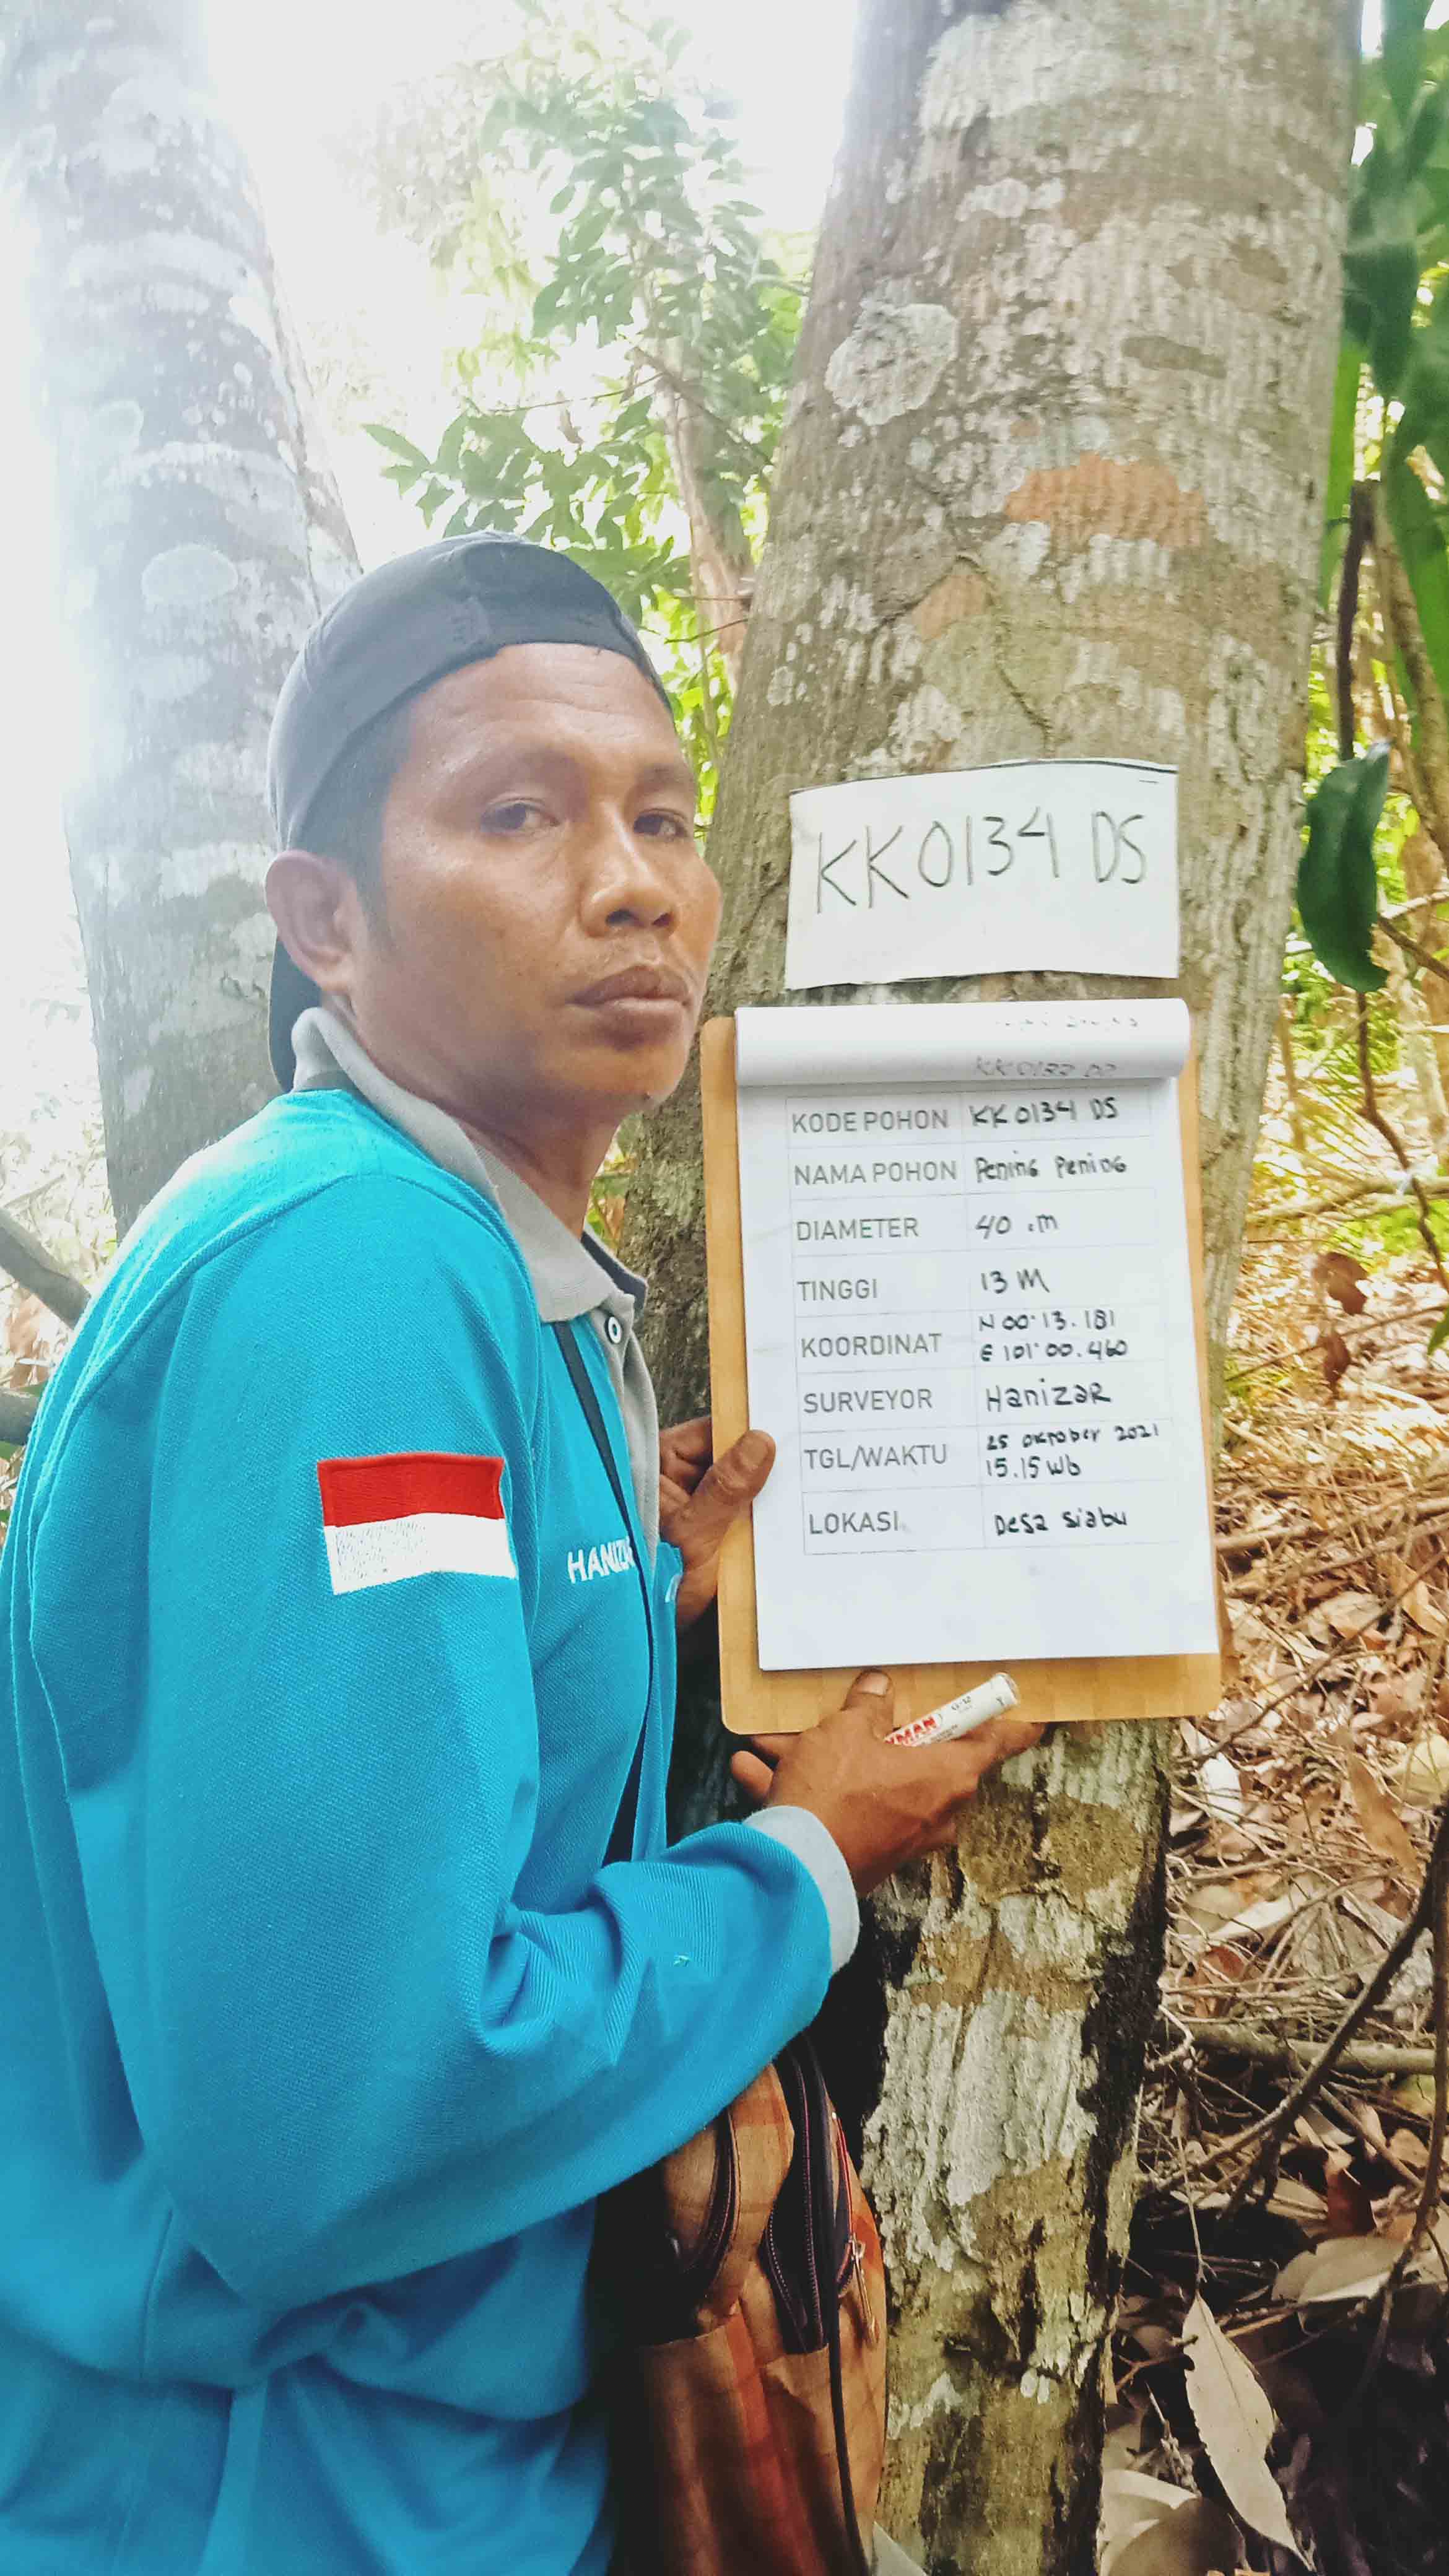 KK0134 DS
KODE POHON KK0134 DS
NAMA POHON Pening Pening
DIAMETER 40 .m
TINGGI 13 M
KOORDINAT N 00°13.181
E 101°00.460
SURVEYOR Hanizar
TGL/WAKTU 25 oktober 2021
15.15 Wb
LOKASI Desa siabu